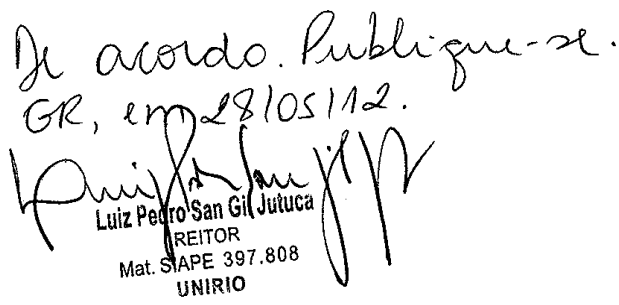 De acordo. Publique-se.
GR, em 28/05/12.
Luiz Pedro San Gil Jutuca
REITOR
Mat. SIAPE 397.808
UNIRIO